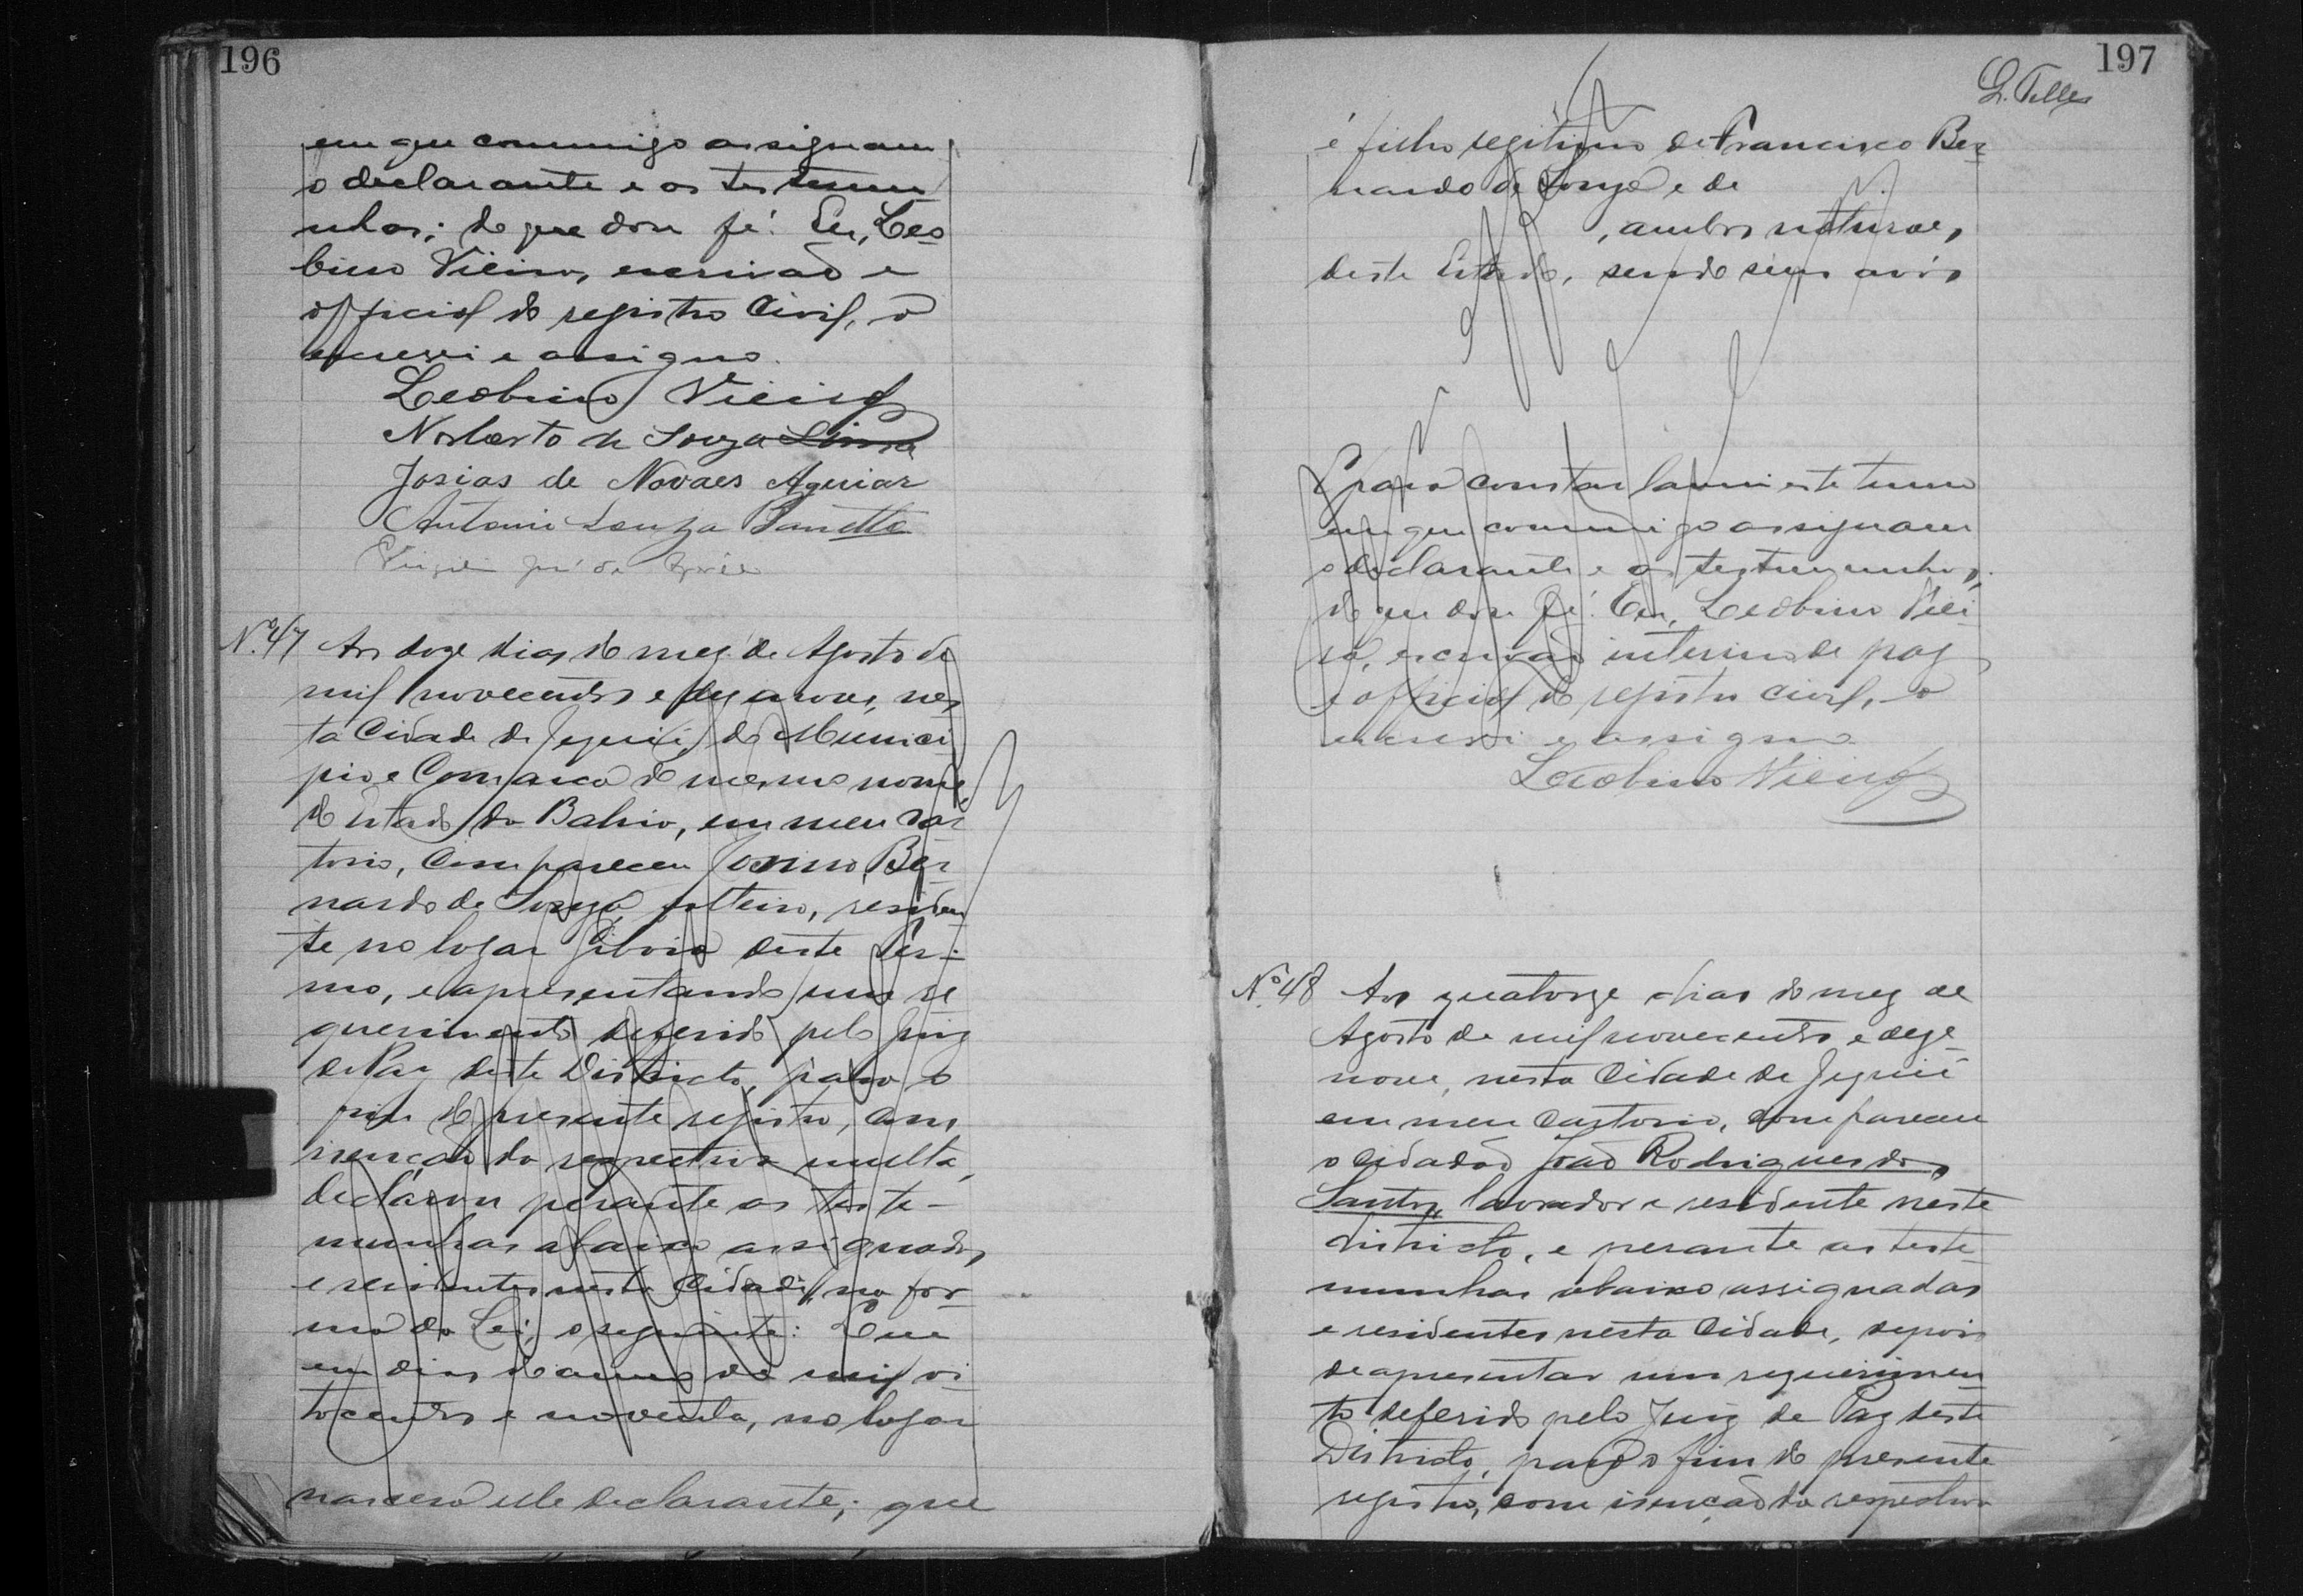 196
em que commigo assignam
o declarante e as testemu
nhas; do que dou fé. Eu, Leo
bino Vieira, escrivão e
official do registro Civil, o
escrevi e assigno.
Leobino Vieira
Norberto de Souza Lima
Josias de Novaes Aguiar
Antonio Souza
Nº 47 Aos doze dias do mez de Agosto de
mil novecentos e dezanove, nes
ta Cidade de Jequié, do Munici
pio e Comarca do mesmo nome,
do Estado da Bahia, em meu Car
torio, Compareceu Ber
nardo de Souza, solteiro, residen
te no logar Giboia deste Ter-
mo, e apresentando um re
querimento deferido pelo Juiz
de Paz deste Districto, para o
fim do presente registro, com
isenção da respectiva multa,
declarou perante as teste-
munhas abaixo assignadas,
e residentes nesta Cidade, na for-
ma da Lei, o seguinte: Que
em dias do anno de mil oi
tocentos e noventa, no logar
nasceu elle declarante; que
197
L. Telles
é filho legitimo de Francisco Ber
nardo de Souza e de
, ambos naturaes
deste Estado, sendo seus avós
E para constar lavrei este termo
em que commigo assignam
o declarante e as testemunhas,
do que dou fé. Eu, Leobino Viei
ra, escrivão interino de paz
e official do registro civil, o
escrevi e assigno.
Leobino Vieira
Nº 48 Aos quatorze dias do mez de
Agosto de mil novecentos e deze
nove, nesta Cidade de Jequié
em meu Cartorio, compareceu
o cidadão João Rodrigues dos
Santos, lavrador e residente neste
districto, e perante as teste
munhas abaixo assignadas
e residentes nesta Cidade, depois
de apresentar um requerimen
to deferido pelo Juiz de Paz deste
Districto, para o fim do presente
registro, com isenção da respectiva